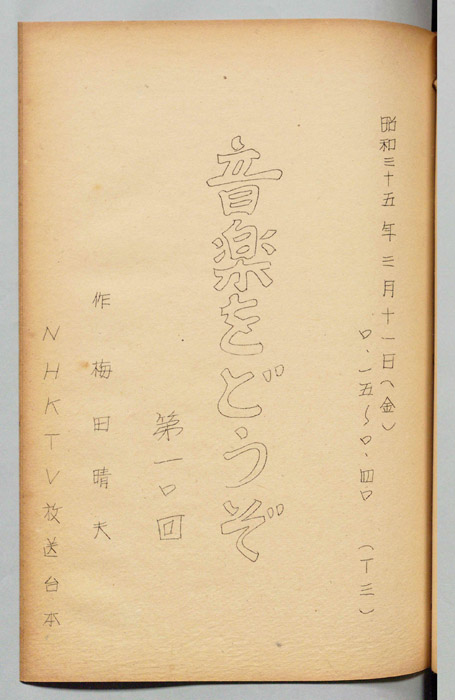 昭和三十五年三月十一日(金)
〇.一五~〇.四〇 (T三)
音楽をどうぞ
第一〇回
作 梅田晴夫
NHKTV放送台本